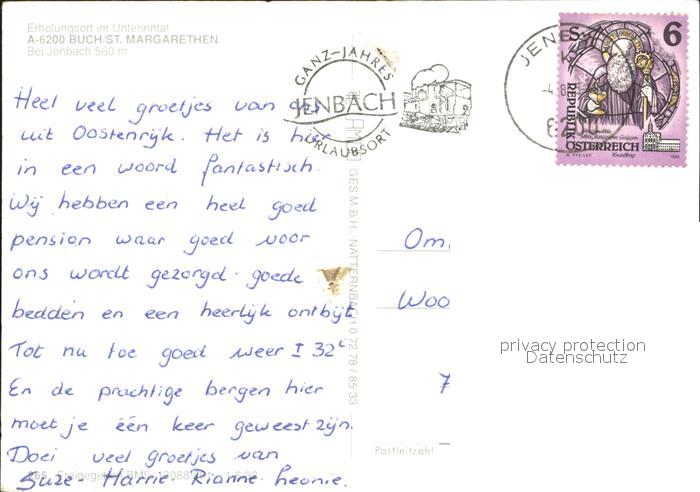 Erholungsort im Unterinntal
A-6200 BUCH/ST. MARGARETHEN
Bei Jenbach 560 m
GANZ-JAHRES
JENBACH
URLAUBSORT
JENB
6
S
REPUBLIK
ÖSTERREICH
Heel veel groetjes van
uit Oostenrijk. Het is hier
in een woord fantastisch.
Wij hebben een heel goed
pension waar goed voor
ons wordt gezorgd. goede
bedden en een heerlijk ontbijt
Tot nu toe goed weer ± 32°
En de prachtige bergen hier
moet je één keer geweest zijn.
Doei veel groetjes van
Suze - Harrie - Rianne - Leonie.
GES.M.B.H., NATTERNBACH 0 72 78 / 85 33
Om
Woo
7
Postleitzahl
privacy protection
Datenschutz